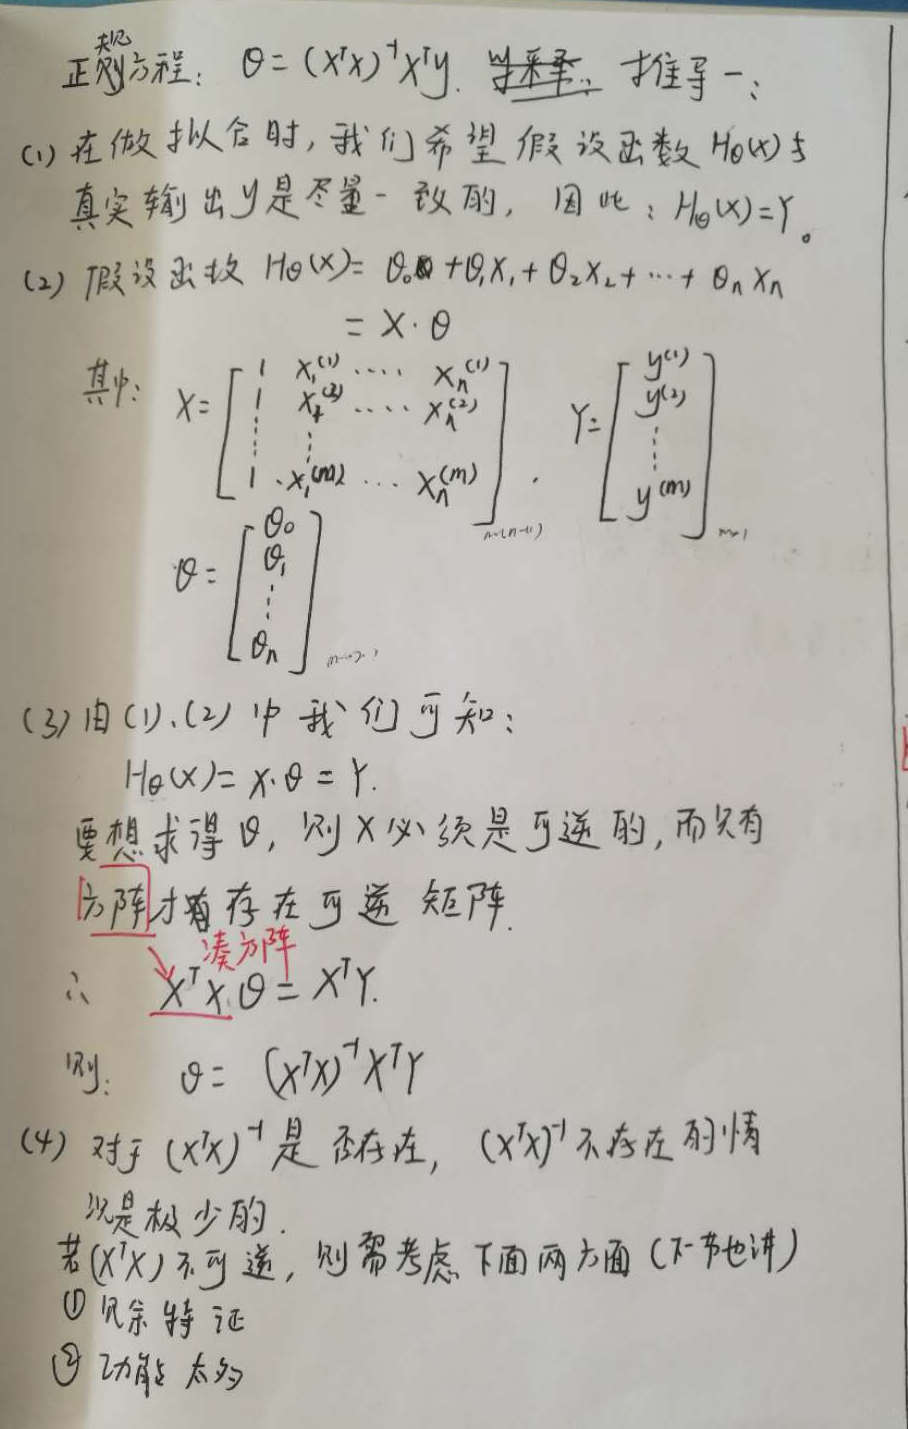 正规方程: θ=(XᵀX)⁻¹Xᵀy. 推导一:
(1) 在做拟合时, 我们希望假设函数 Hθ(x)与
真实输出y是尽量一致的, 因此: Hθ(X)=Y。
(2) 假设函数 Hθ(x)= θ₀+θ₁x₁+θ₂x₂+…+θₙxₙ
= X·θ
其中: X= [ 1 x₁⁽¹⁾ .... xₙ⁽¹⁾ Y= [ y⁽¹⁾
1 x⁽²⁾ .... xₙ⁽²⁾ y⁽²⁾
⋮ ⋮ ⋮
1 x₁⁽ᵐ⁾ ... xₙ⁽ᵐ⁾ ] y⁽ᵐ⁾ ]
θ= [ θ₀
θ₁
⋮
θₙ ]
(3) 由(1)、(2)中我们可知:
Hθ(X)= X·θ = Y.
要想求得θ, 则X必须是可逆的, 而只有
方阵才存在可逆矩阵.
凑方阵
∴ XᵀX.θ = XᵀY.
则: θ= (XᵀX)⁻¹XᵀY
(4) 对于 (XᵀX)⁻¹ 是否存在, (XᵀX)⁻¹不存在的情
况是极少的.
若(XᵀX)不可逆, 则需考虑下面两方面(下节也讲)
① 冗余特证
② 功能太多